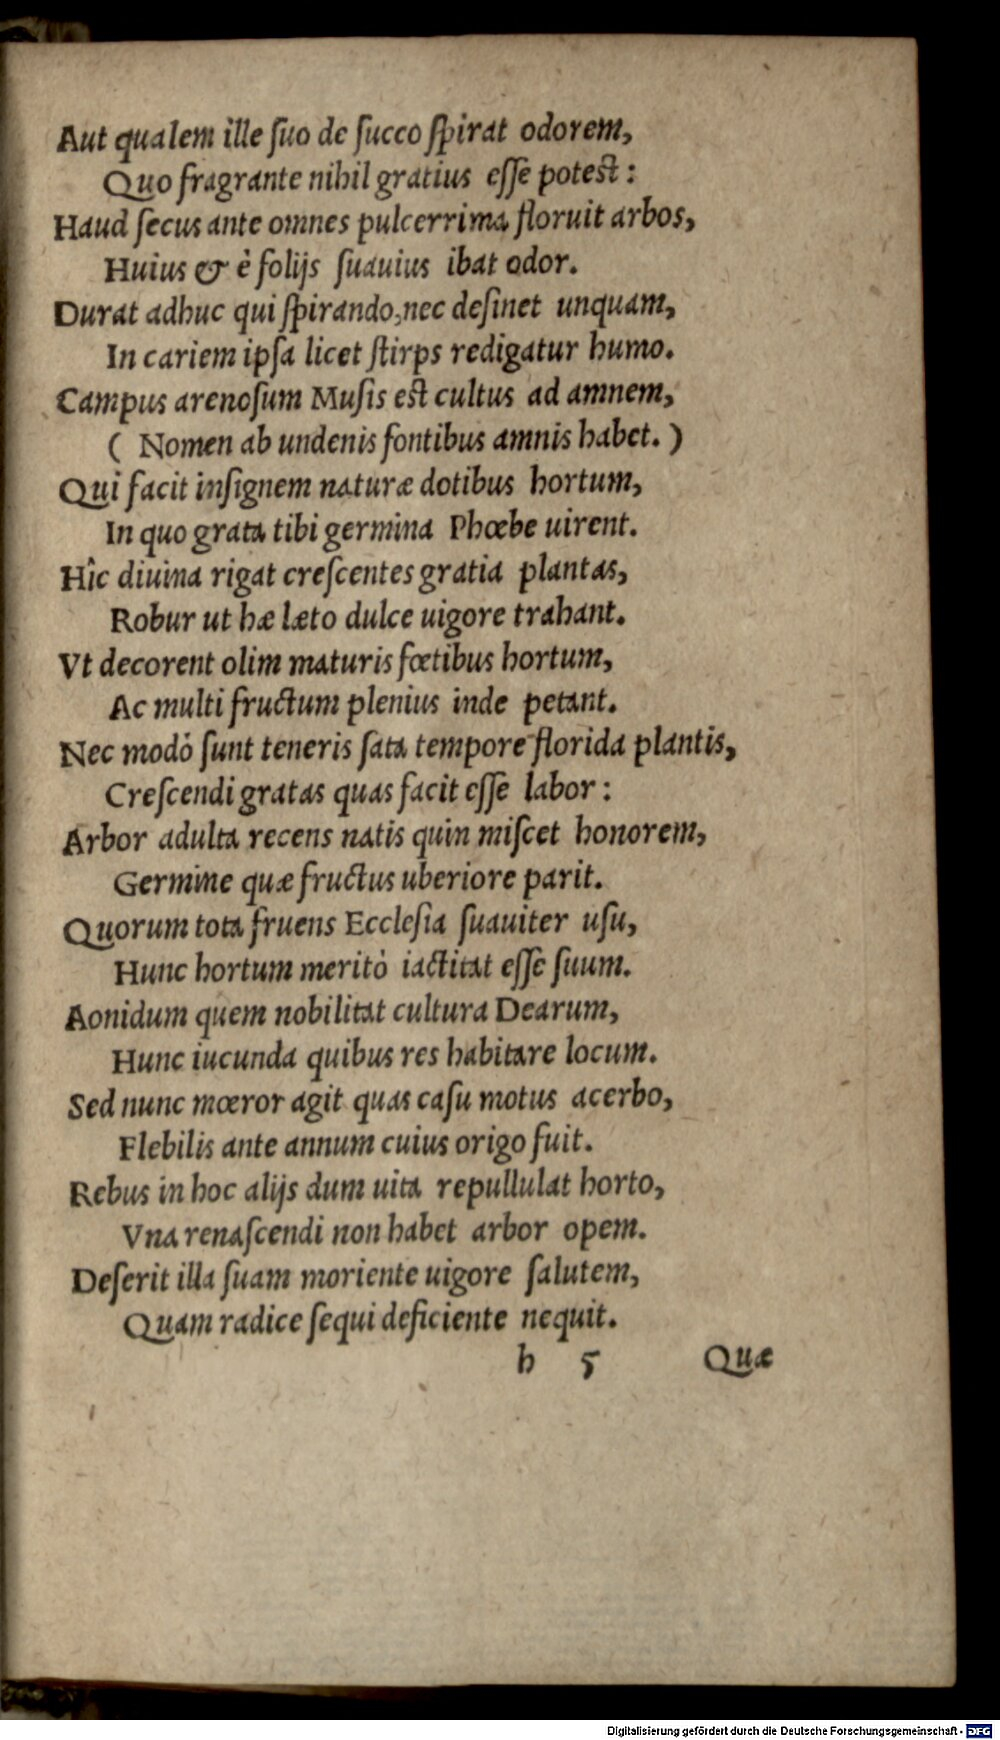 Aut qualem ille ſuo de ſucco ſpirat odorem,
Quo fragrante nihil gratius eſſe poteſt:
Haud ſecus ante omnes pulcerrima floruit arbos,
Huius & è folijs ſuauius ibat odor.
Durat adhuc qui ſpirando, nec deſinet unquam,
In cariem ipſa licet ſtirps redigatur humo.
Campus arenoſum Muſis eſt cultus ad amnem,
( Nomen ab undenis fontibus amnis habet. )
Qui facit inſignem naturæ dotibus hortum,
In quo grata tibi germina Phœbe uirent.
Hîc diuina rigat creſcentes gratia plantas,
Robur ut hæ læto dulce uigore trahant.
Vt decorent olim maturis fœtibus hortum,
Ac multi fructum plenius inde petant.
Nec modò ſunt teneris ſata tempore florida plantis,
Creſcendi gratas quas facit eſſe labor:
Arbor adulta recens natis quin miſcet honorem,
Germine quæ fructus uberiore parit.
Quorum tota fruens Eccleſia ſuauiter uſu,
Hunc hortum meritò iactitat eſſe ſuum.
Aonidum quem nobilitat cultura Dearum,
Hunc iucunda quibus res habitare locum.
Sed nunc mœror agit quas caſu motus acerbo,
Flebilis ante annum cuius origo fuit.
Rebus in hoc alijs dum uita repullulat horto,
Vna renaſcendi non habet arbor opem.
Deſerit illa ſuam moriente uigore ſalutem,
Quam radice ſequi deficiente nequit.
h 5 Quæ
Digitalisierung gefördert durch die Deutsche Forschungsgemeinschaft - DFG